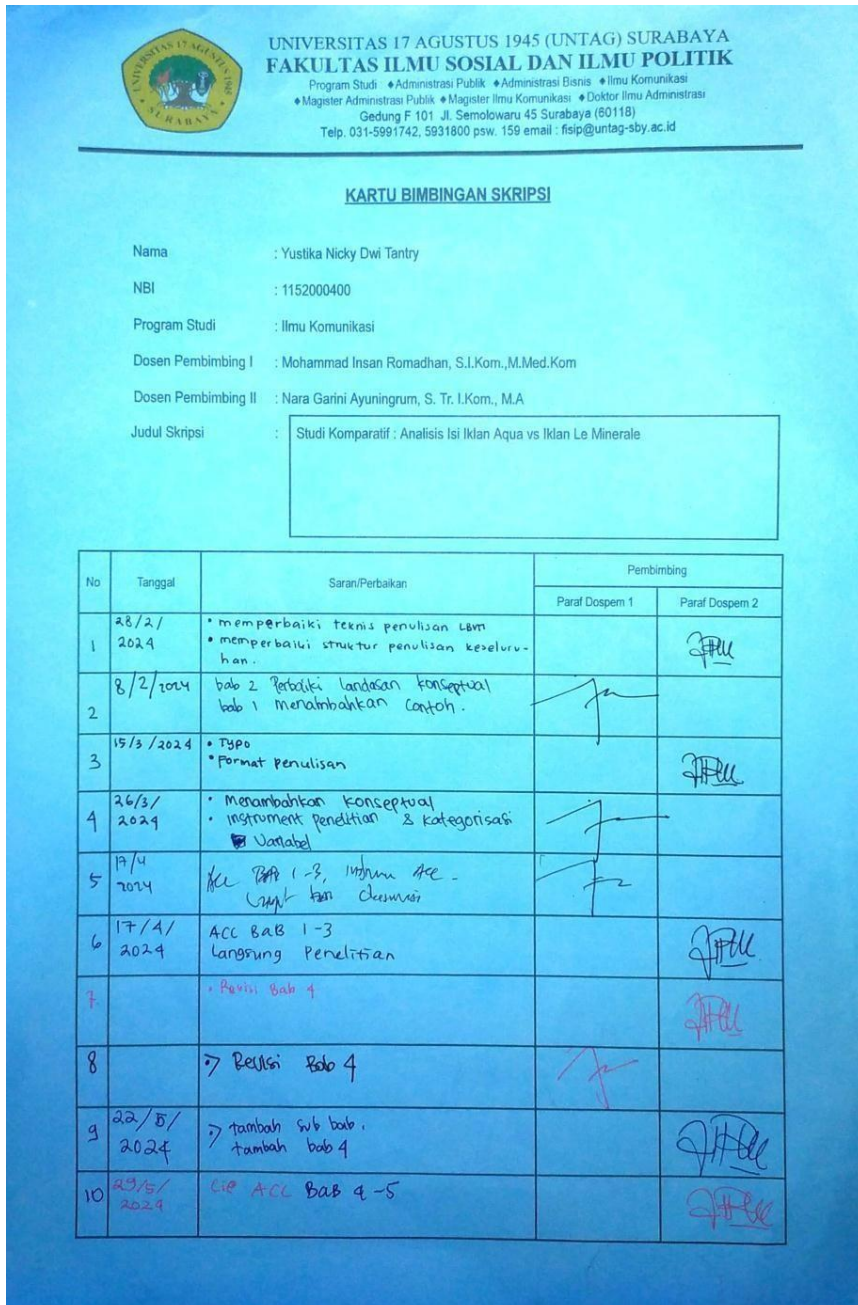 UNIVERSITAS 17 AGUSTUS 1945
SURABAYA
UNIVERSITAS 17 AGUSTUS 1945 (UNTAG) SURABAYA
FAKULTAS ILMU SOSIAL DAN ILMU POLITIK
Program Studi ♦Administrasi Publik ♦Administrasi Bisnis ♦Ilmu Komunikasi
♦Magister Administrasi Publik ♦Magister Ilmu Komunikasi ♦Doktor Ilmu Administrasi
Gedung F 101 Jl. Semolowaru 45 Surabaya (60118)
Telp. 031-5991742, 5931800 psw. 159 email : fisip@untag-sby.ac.id
KARTU BIMBINGAN SKRIPSI
Nama : Yustika Nicky Dwi Tantry
NBI : 1152000400
Program Studi : Ilmu Komunikasi
Dosen Pembimbing I : Mohammad Insan Romadhan, S.I.Kom.,M.Med.Kom
Dosen Pembimbing II : Nara Garini Ayuningrum, S. Tr. I.Kom., M.A
Judul Skripsi : Studi Komparatif : Analisis Isi Iklan Aqua vs Iklan Le Minerale
No Tanggal Saran/Perbaikan Pembimbing
Paraf Dospem 1 Paraf Dospem 2
1 28/2/2024 • memperbaiki teknis penulisan LBM
• memperbaiki struktur penulisan keseluru-
han.
2 8/2/2024 bab 2 Perbaiki landasan konseptual
bab 1 menambahkan contoh.
3 15/3/2024 • Typo
• Format penulisan
4 26/3/2024 • Menambahkan konseptual
• instrument penelitian & kategorisasi
Variabel
5 17/4 2024 Acc BAB 1-3, Acc
6 17/4/2024 ACC BaB 1-3
Langsung Penelitian
7. • Revisi Bab 4
8 Revisi Bab 4
9 22/5/2024 tambah sub bab.
tambah bab 4
10 29/5/2024 ACC BaB 4-5